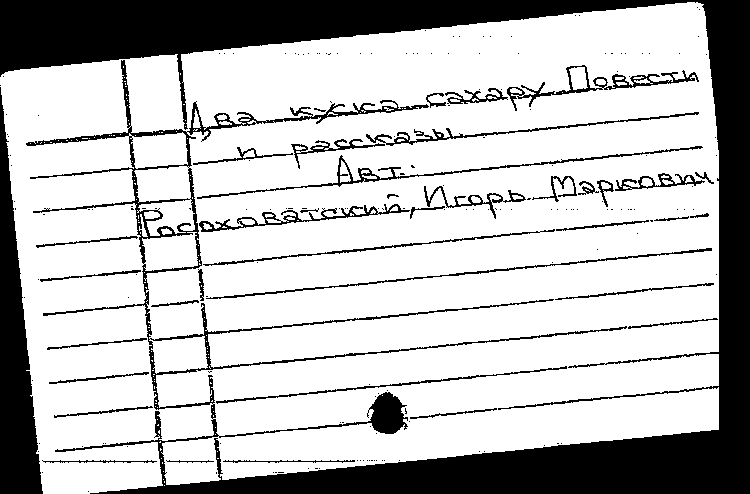 Два куска сахару Повести
и рассказы.
Авт.:
Росоховатский, Игорь Маркович.